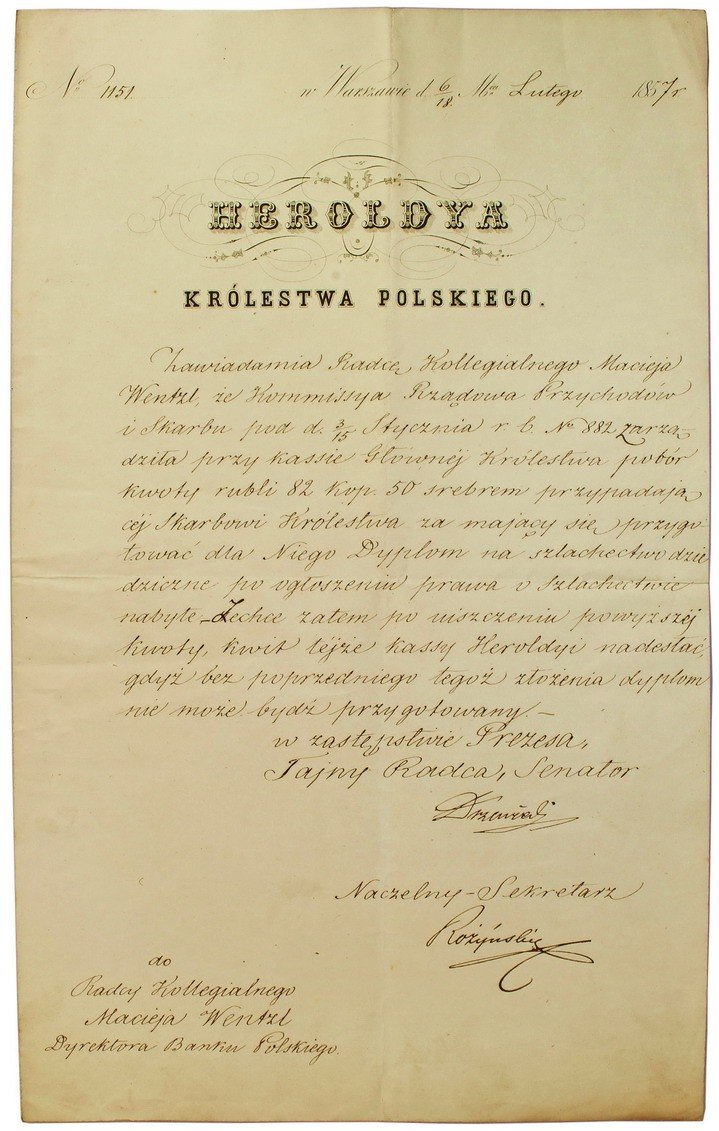 No 1151. w Warszawie d. 6/18 Mca Lutego 1857 r
HEROLDYA
KRÓLESTWA POLSKIEGO.
Zawiadamia Radcę Kollegialnego Macieja
Wentzl, że Kommissya Rządowa Przychodów
i Skarbu pod d. 3/15 Stycznia r. b. No 882 zarzą-
dziła przy kassie Głównéj Królestwa pobór
kwoty rubli 82 kop. 50 srebrem przypadają
céj Skarbowi Królestwa za mający się przygo-
tować dla Niego Dyplom na szlachectwo dzie
dziczne po ogłoszeniu prawa o Szlachectwie
nabyte – Zechce zatem po uiszczeniu powyższéj
kwoty, kwit téjże kassy Heroldyi nadesłać,
gdyż bez poprzedniego tegoż złożenia dyplom
nie może bydź przygotowany. –
w zastępstwie Prezesa,
Tajny Radca, Senator
Naczelny-Sekretarz
Różyński
do
Radcy Kollegialnego
Macieja Wentzl
Dyrektora Banku Polskiego.